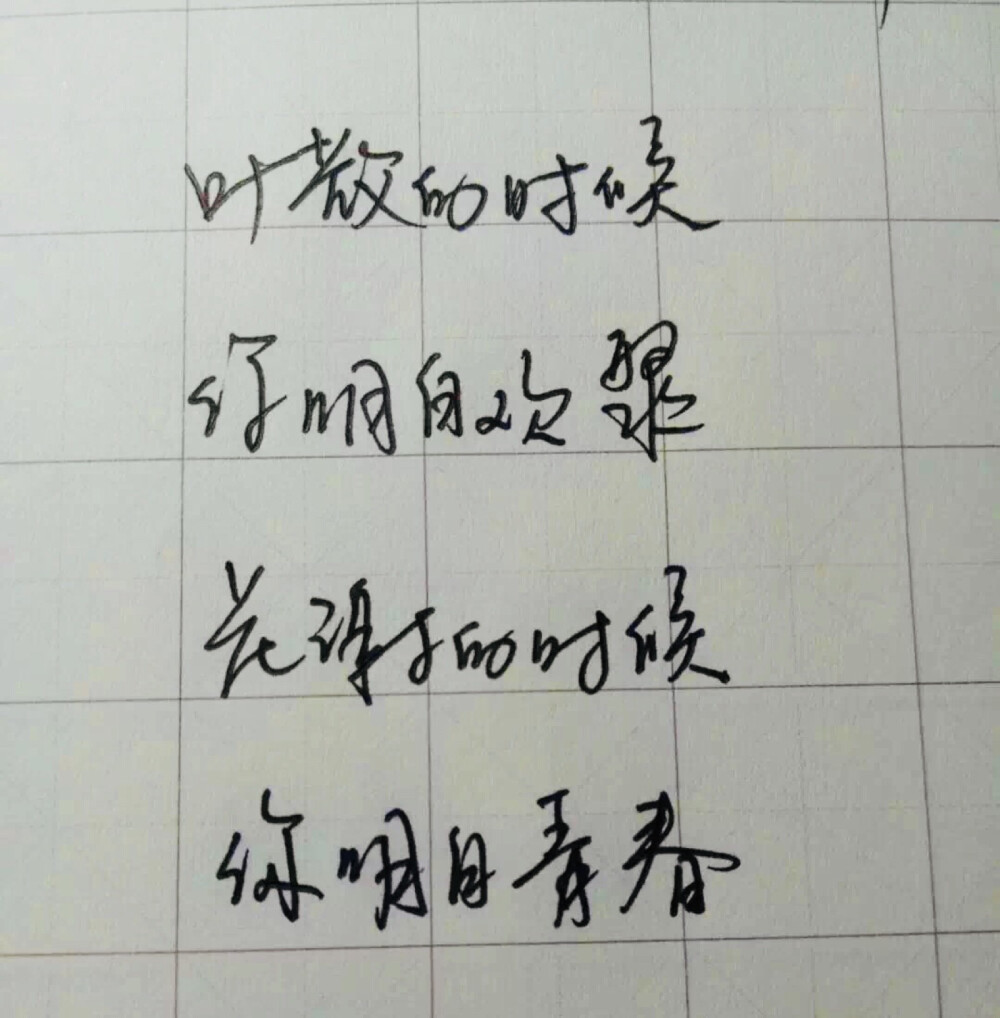 叶散的时候
你明白欢聚
花谢的时候
你明白青春